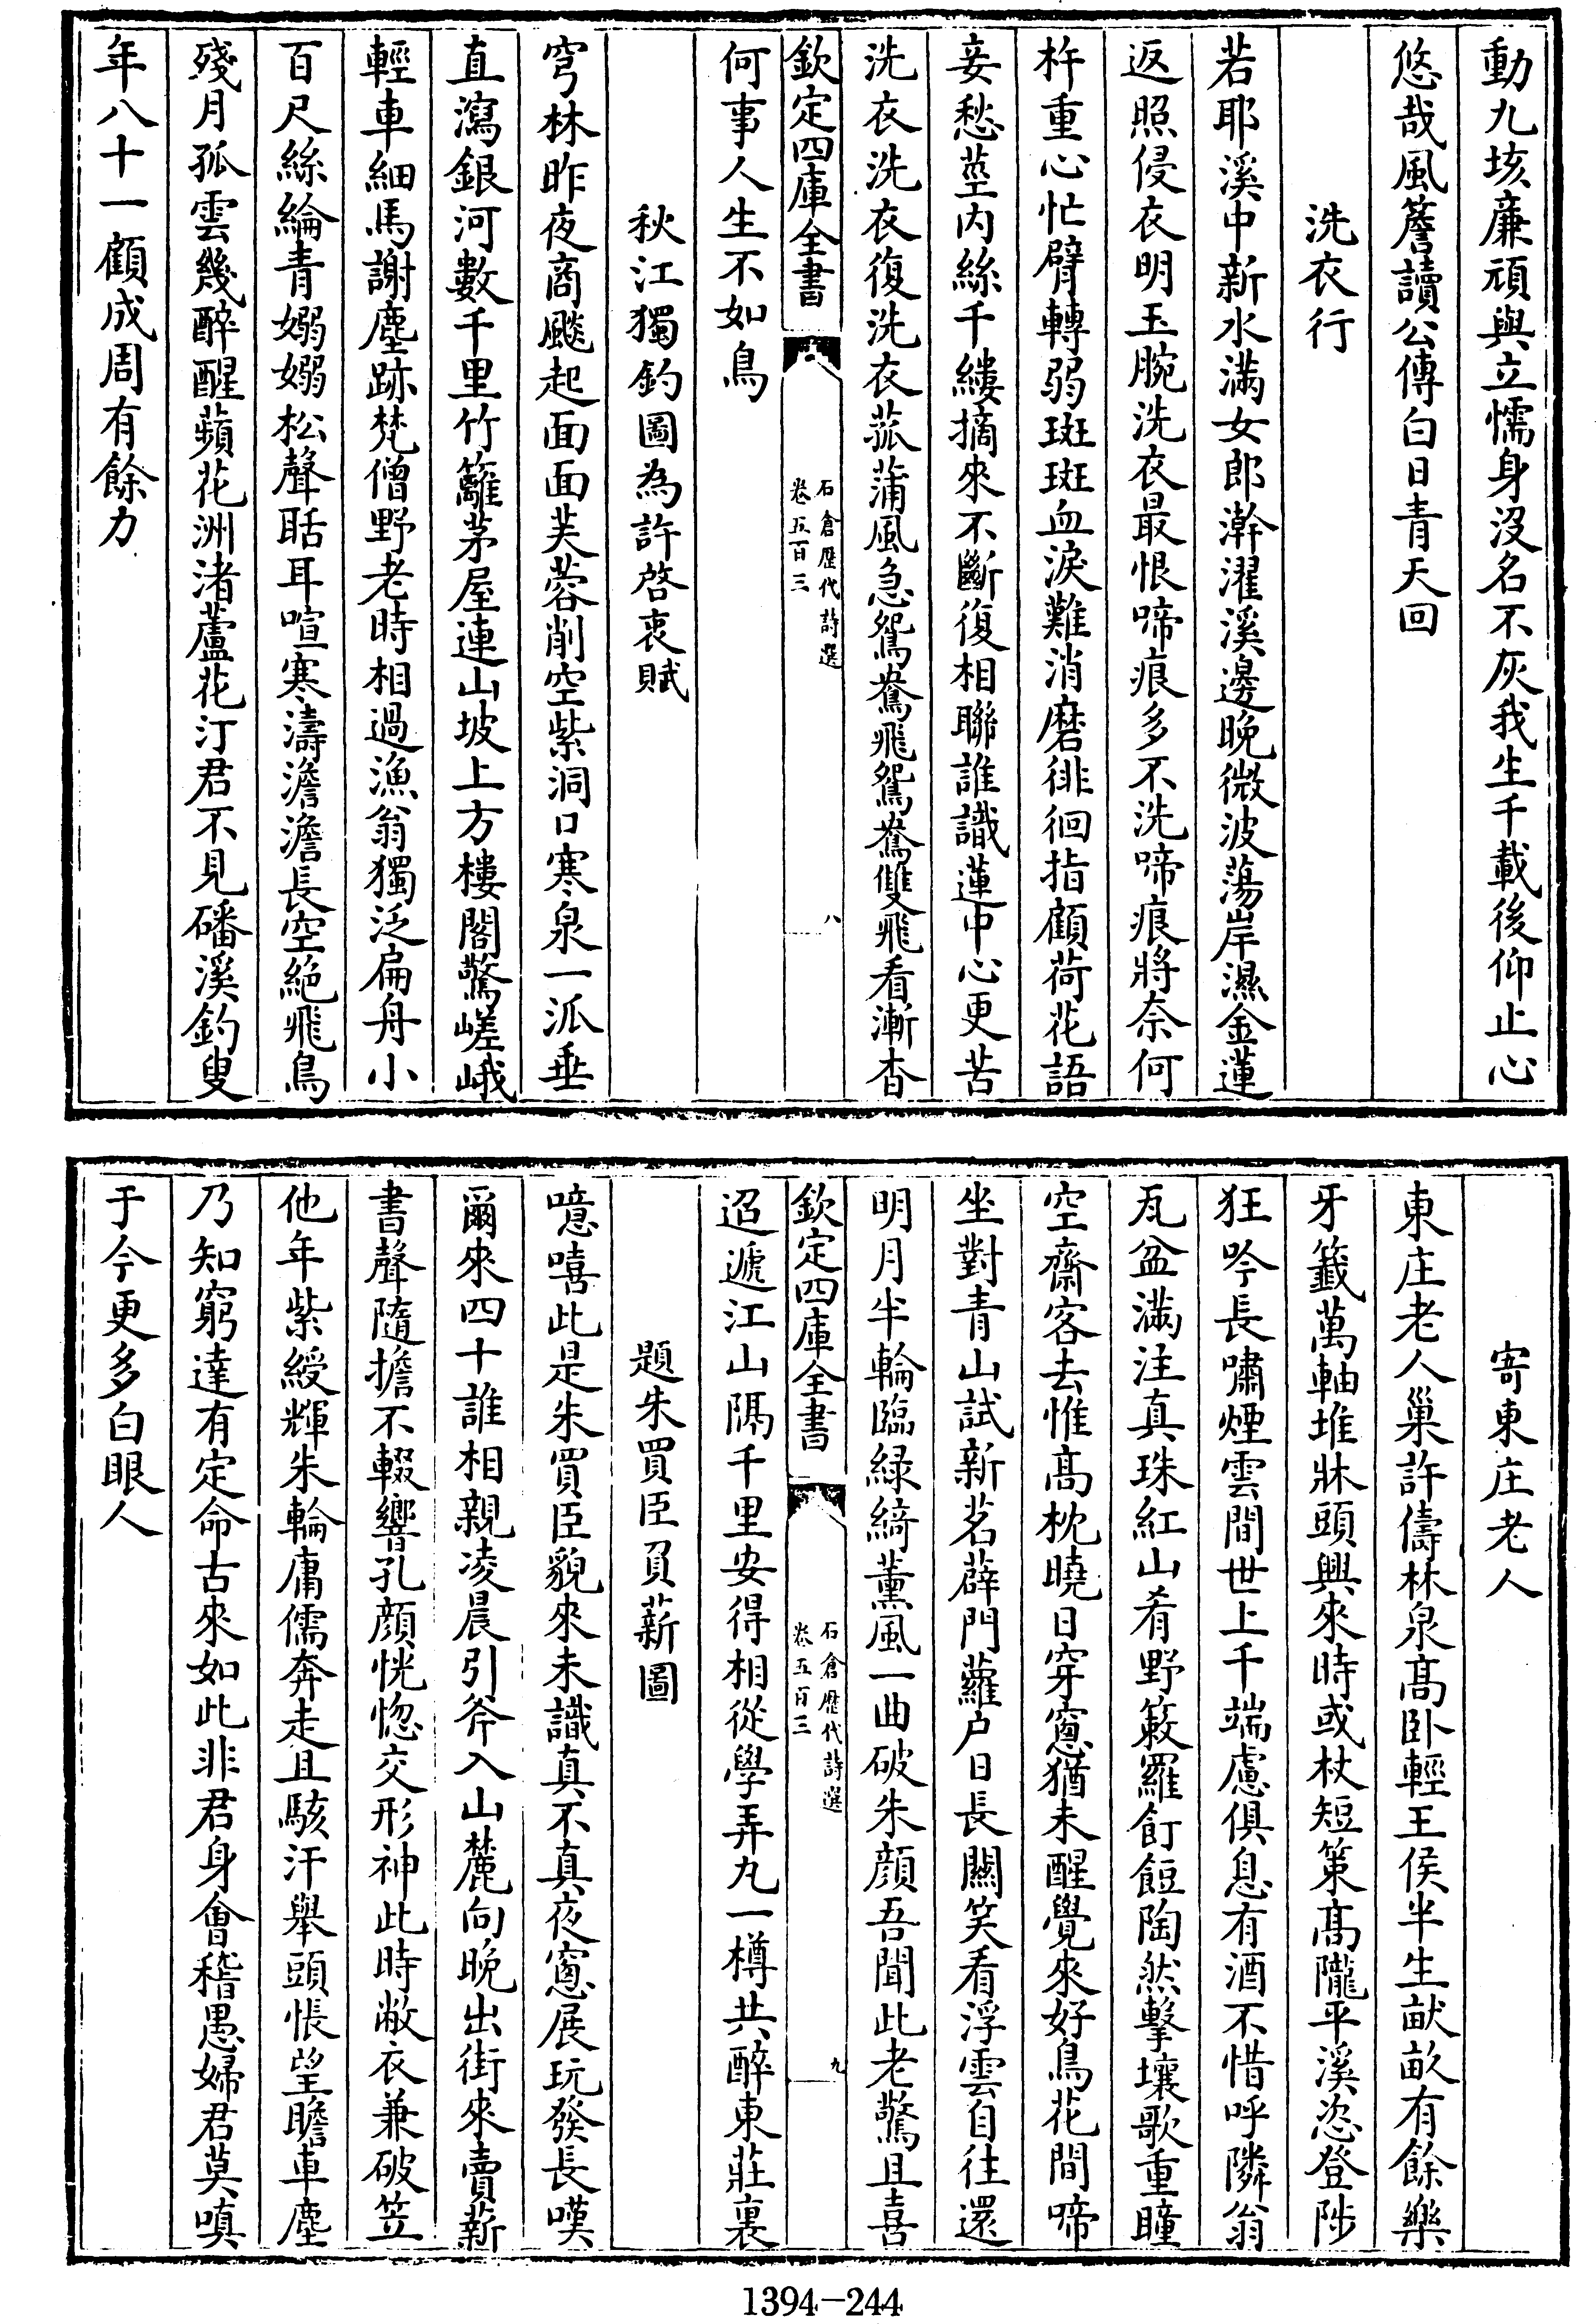 動九垓廉頑與立懦身沒名不灰我生千載後仰止心
悠哉風簷讀公傳白日青天回
洗衣行
若耶溪中新水滿女郎澣濯溪邊晚微波蕩岸濕金蓮
返照侵衣明玉腕洗衣最恨啼痕多不洗啼痕將奈何
杵重心忙臂轉弱斑斑血淚難消磨徘徊指顧荷花語
妾愁莖内絲千縷摘來不斷復相聯誰識蓮中心更苦
洗衣洗衣復洗衣菰蒲風急鴛鴦飛鴛鴦雙飛看漸杳
欽定四庫全書
石倉歷代詩選
卷五百三
八
何事人生不如鳥
秋江獨釣圖為許啓衷賦
穹林昨夜商飈起面面芙蓉削空紫洞口寒泉一派垂
直瀉銀河數千里竹籬茅屋連山坡上方樓閣驚嵯峨
輕車細馬謝塵跡梵僧野老時相過漁翁獨泛扁舟小
百尺絲綸青嫋嫋松聲聒耳喧寒濤澹澹長空絕飛鳥
殘月孤雲幾醉醒蘋花洲渚蘆花汀君不見磻溪釣叟
年八十一顧成周有餘力
寄東庄老人
東庄老人巢許儔林泉髙卧輕王侯半生畎畝有餘樂
牙籤萬軸堆牀頭興來時或杖短策髙隴平溪恣登陟
狂吟長嘯煙雲間世上千端慮俱息有酒不惜呼隣翁
瓦盆滿注真珠紅山肴野簌羅飣餖陶然擊壤歌重瞳
空齋客去惟髙枕曉日穿窻猶未醒覺來好鳥花間啼
坐對青山試新茗薜門蘿户日長關笑看浮雲自往還
明月半輪臨緑綺薰風一曲破朱顔吾聞此老驚且喜
欽定四庫全書
石倉歷代詩選
卷五百三
九
迢遞江山隔千里安得相從學弄丸一樽共醉東莊裏
題朱買臣負薪圖
噫嘻此是朱買臣貌來未識真不真夜窻展玩發長嘆
爾來四十誰相親凌晨引斧入山麓向晚出街來賣薪
書聲隨擔不輟響孔顔恍惚交形神此時敝衣兼破笠
他年紫綬輝朱輪庸儒奔走且駭汗舉頭悵望瞻車塵
乃知窮達有定命古來如此非君身會稽愚婦君莫嗔
于今更多白眼人
1394-244